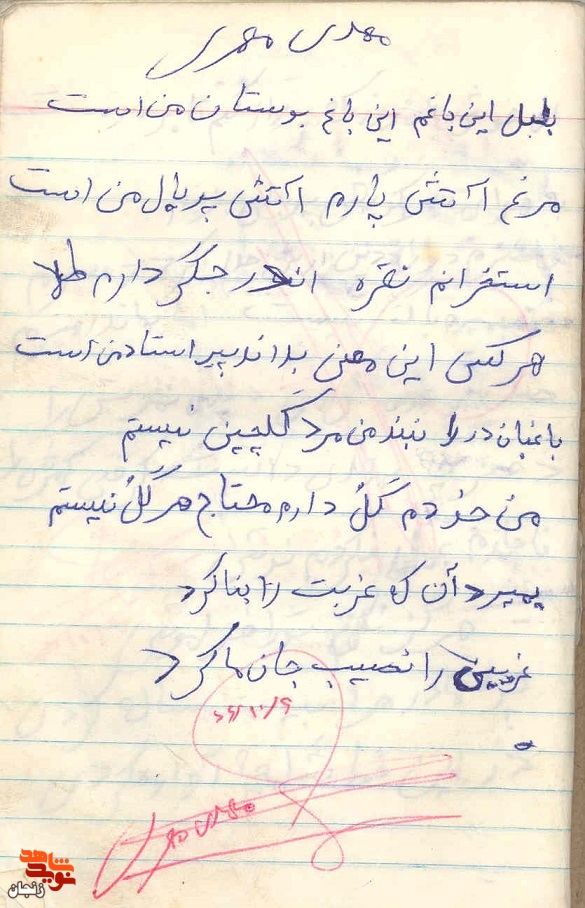 مهدی مهری
بلبل این باغم این باغ بوستان من است
مرغ آتش پارم آتش پر پال من است
استخرانم نقره اندر جگر دارم طلا
هر کس این معنی بداند پیر استاد من است
باغبان در را نبند من مرد گلچین نیستم
من خودم گل دارم محتاج هر گل نیستم
بمیرد آن که غربت را بنا کرد
غریبی را نصیب جان ما کرد
مهدی مهری
نوید شاهد
زنجان